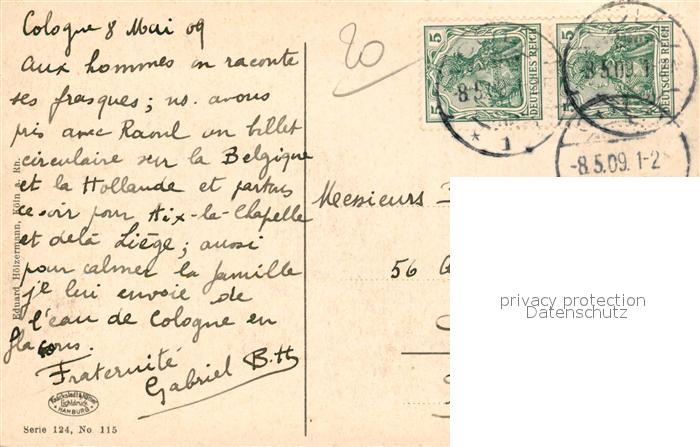 Cologne 8 Mai 09
Aux hommes on raconte
ses frasques; ns. avons
pris avec Raoul un billet
circulaire sur la Belgique
et la Hollande et partons
ce soir pour Aix-la-Chapelle
et delà Liège; aussi
pour calmer la famille
je lui envoie de
l'eau de Cologne en
flacons.
Fraternité
Gabriel B.
20
5 DEUTSCHES REICH 5
5 DEUTSCHES REICH 5
8.5.09. 1
* 1
-8.5.09. 1-2
Messieurs
56
privacy protection
Datenschutz
Eduard Hölzermann, Köln a. Rh.
Knackstedt & Näther
Lichtdruck
HAMBURG
Serie 124, No. 115